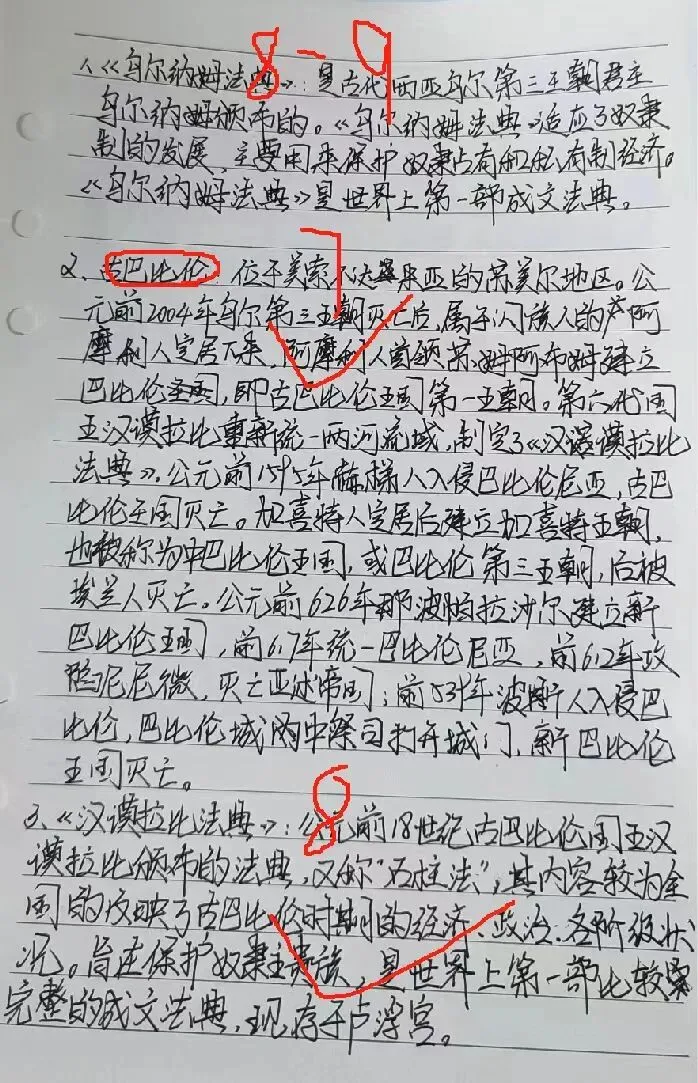 8-9
1、《乌尔纳姆法典》：是古代西亚乌尔第三王朝君主
乌尔纳姆颁布的。《乌尔纳姆法典》适应了奴隶
制的发展，主要用来保护奴隶占有和私有制经济。
《乌尔纳姆法典》是世界上第一部成文法典。
7
2、古巴比伦：位于美索不达米亚的苏美尔地区。公
元前2004年乌尔第三王朝灭亡后，属于闪族人的阿
摩利人定居下来，阿摩利人首领苏姆阿布姆建立
巴比伦王国，即古巴比伦王国第一王朝。第六代国
王汉谟拉比重新统一两河流域，制定了《汉谟拉比
法典》。公元前1595年赫梯人入侵巴比伦尼亚，古巴
比伦王国灭亡。加喜特人定居后建立加喜特王朝，
也被称为中巴比伦王国，或巴比伦第三王朝，后被
埃兰人灭亡。公元前626年那波帕拉沙尔建立新
巴比伦王国，前617年统一巴比伦尼亚，前612年攻
陷尼尼微，灭亡亚述帝国；前539年波斯人入侵巴
比伦，巴比伦城内中祭司打开城门，新巴比伦
王国灭亡。
8
3、《汉谟拉比法典》：公元前18世纪古巴比伦国王汉
谟拉比颁布的法典，又称“石柱法”，其内容较为全
面的反映了古巴比伦时期的经济、政治、各阶级状
况。旨在保护奴隶主贵族，是世界上第一部比较
完整的成文法典，现存于卢浮宫。